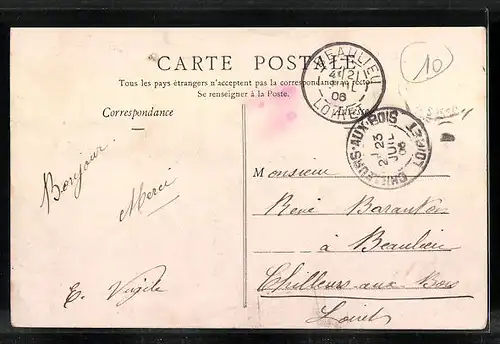 CARTE POSTALE
Tous les pays étrangers n'acceptent pas la correspondance au recto
Se renseigner à la Poste.
Correspondance
BEAULIEU
LOIRET
10
CHILLEURS-AUX-BOIS
LOIRET
23
JUIL
06
Bonjour
Merci
E. Virgile
Monsieur
René
à Beaulieu
Chilleurs-aux-Bois
Loiret